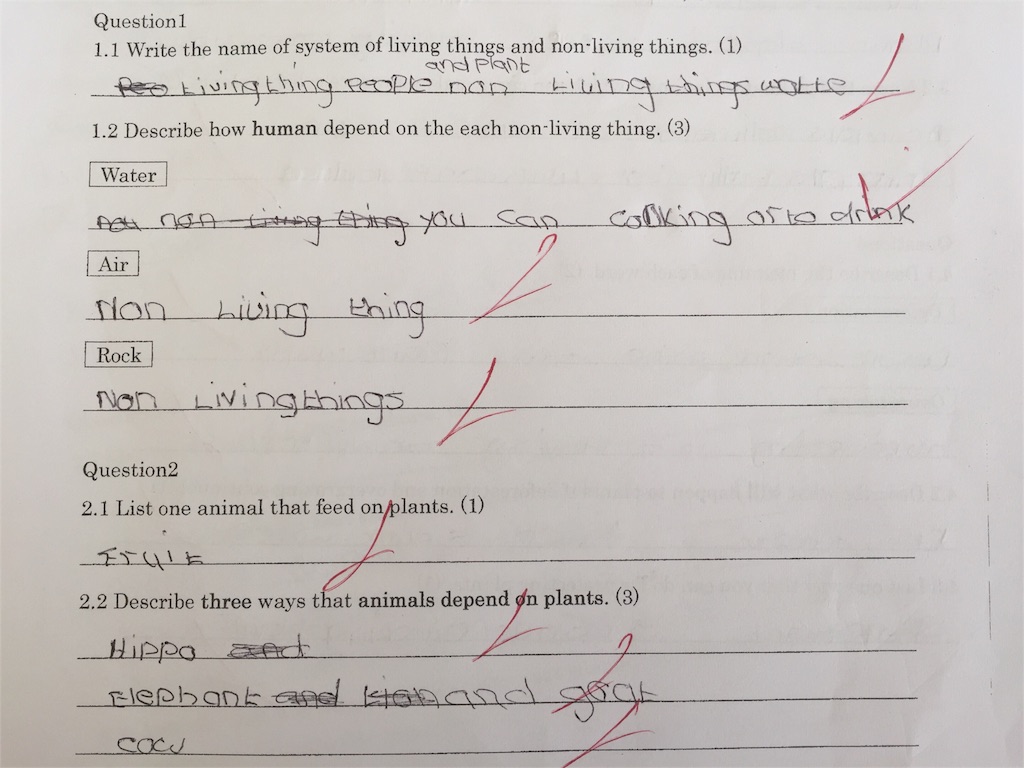 Question1
1.1 Write the name of system of living things and non-living things. (1)
and plant
Living thing People non Living things watte
1.2 Describe how human depend on the each non-living thing. (3)
Water
non Living thing you can cooking or to drink
Air
Non Living thing
Rock
Non Living things
Question2
2.1 List one animal that feed on plants. (1)
Fruit
2.2 Describe three ways that animals depend on plants. (3)
Hippo and
Elephant and lion and goat
cow